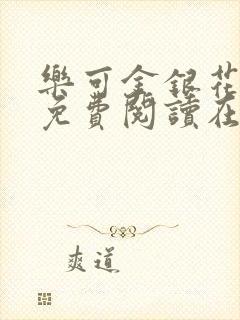 樂可金銀花
免費閱讀在
爽道